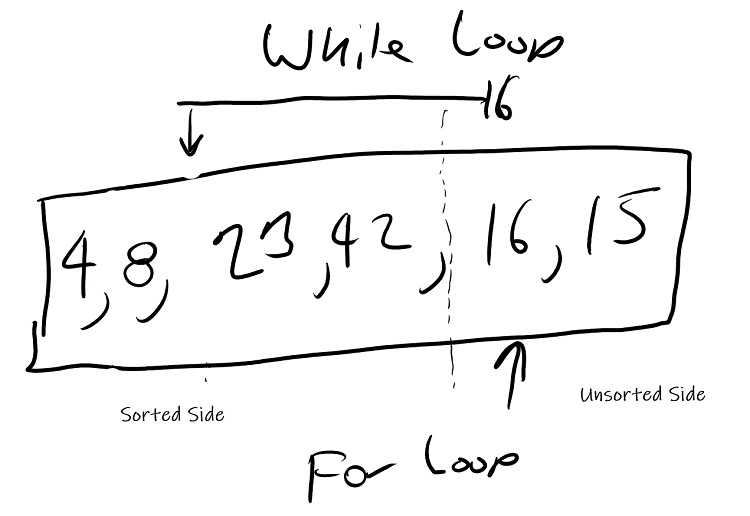 While Loop
16
4, 8, 23, 42, 16, 15
Sorted Side
Unsorted Side
For Loop